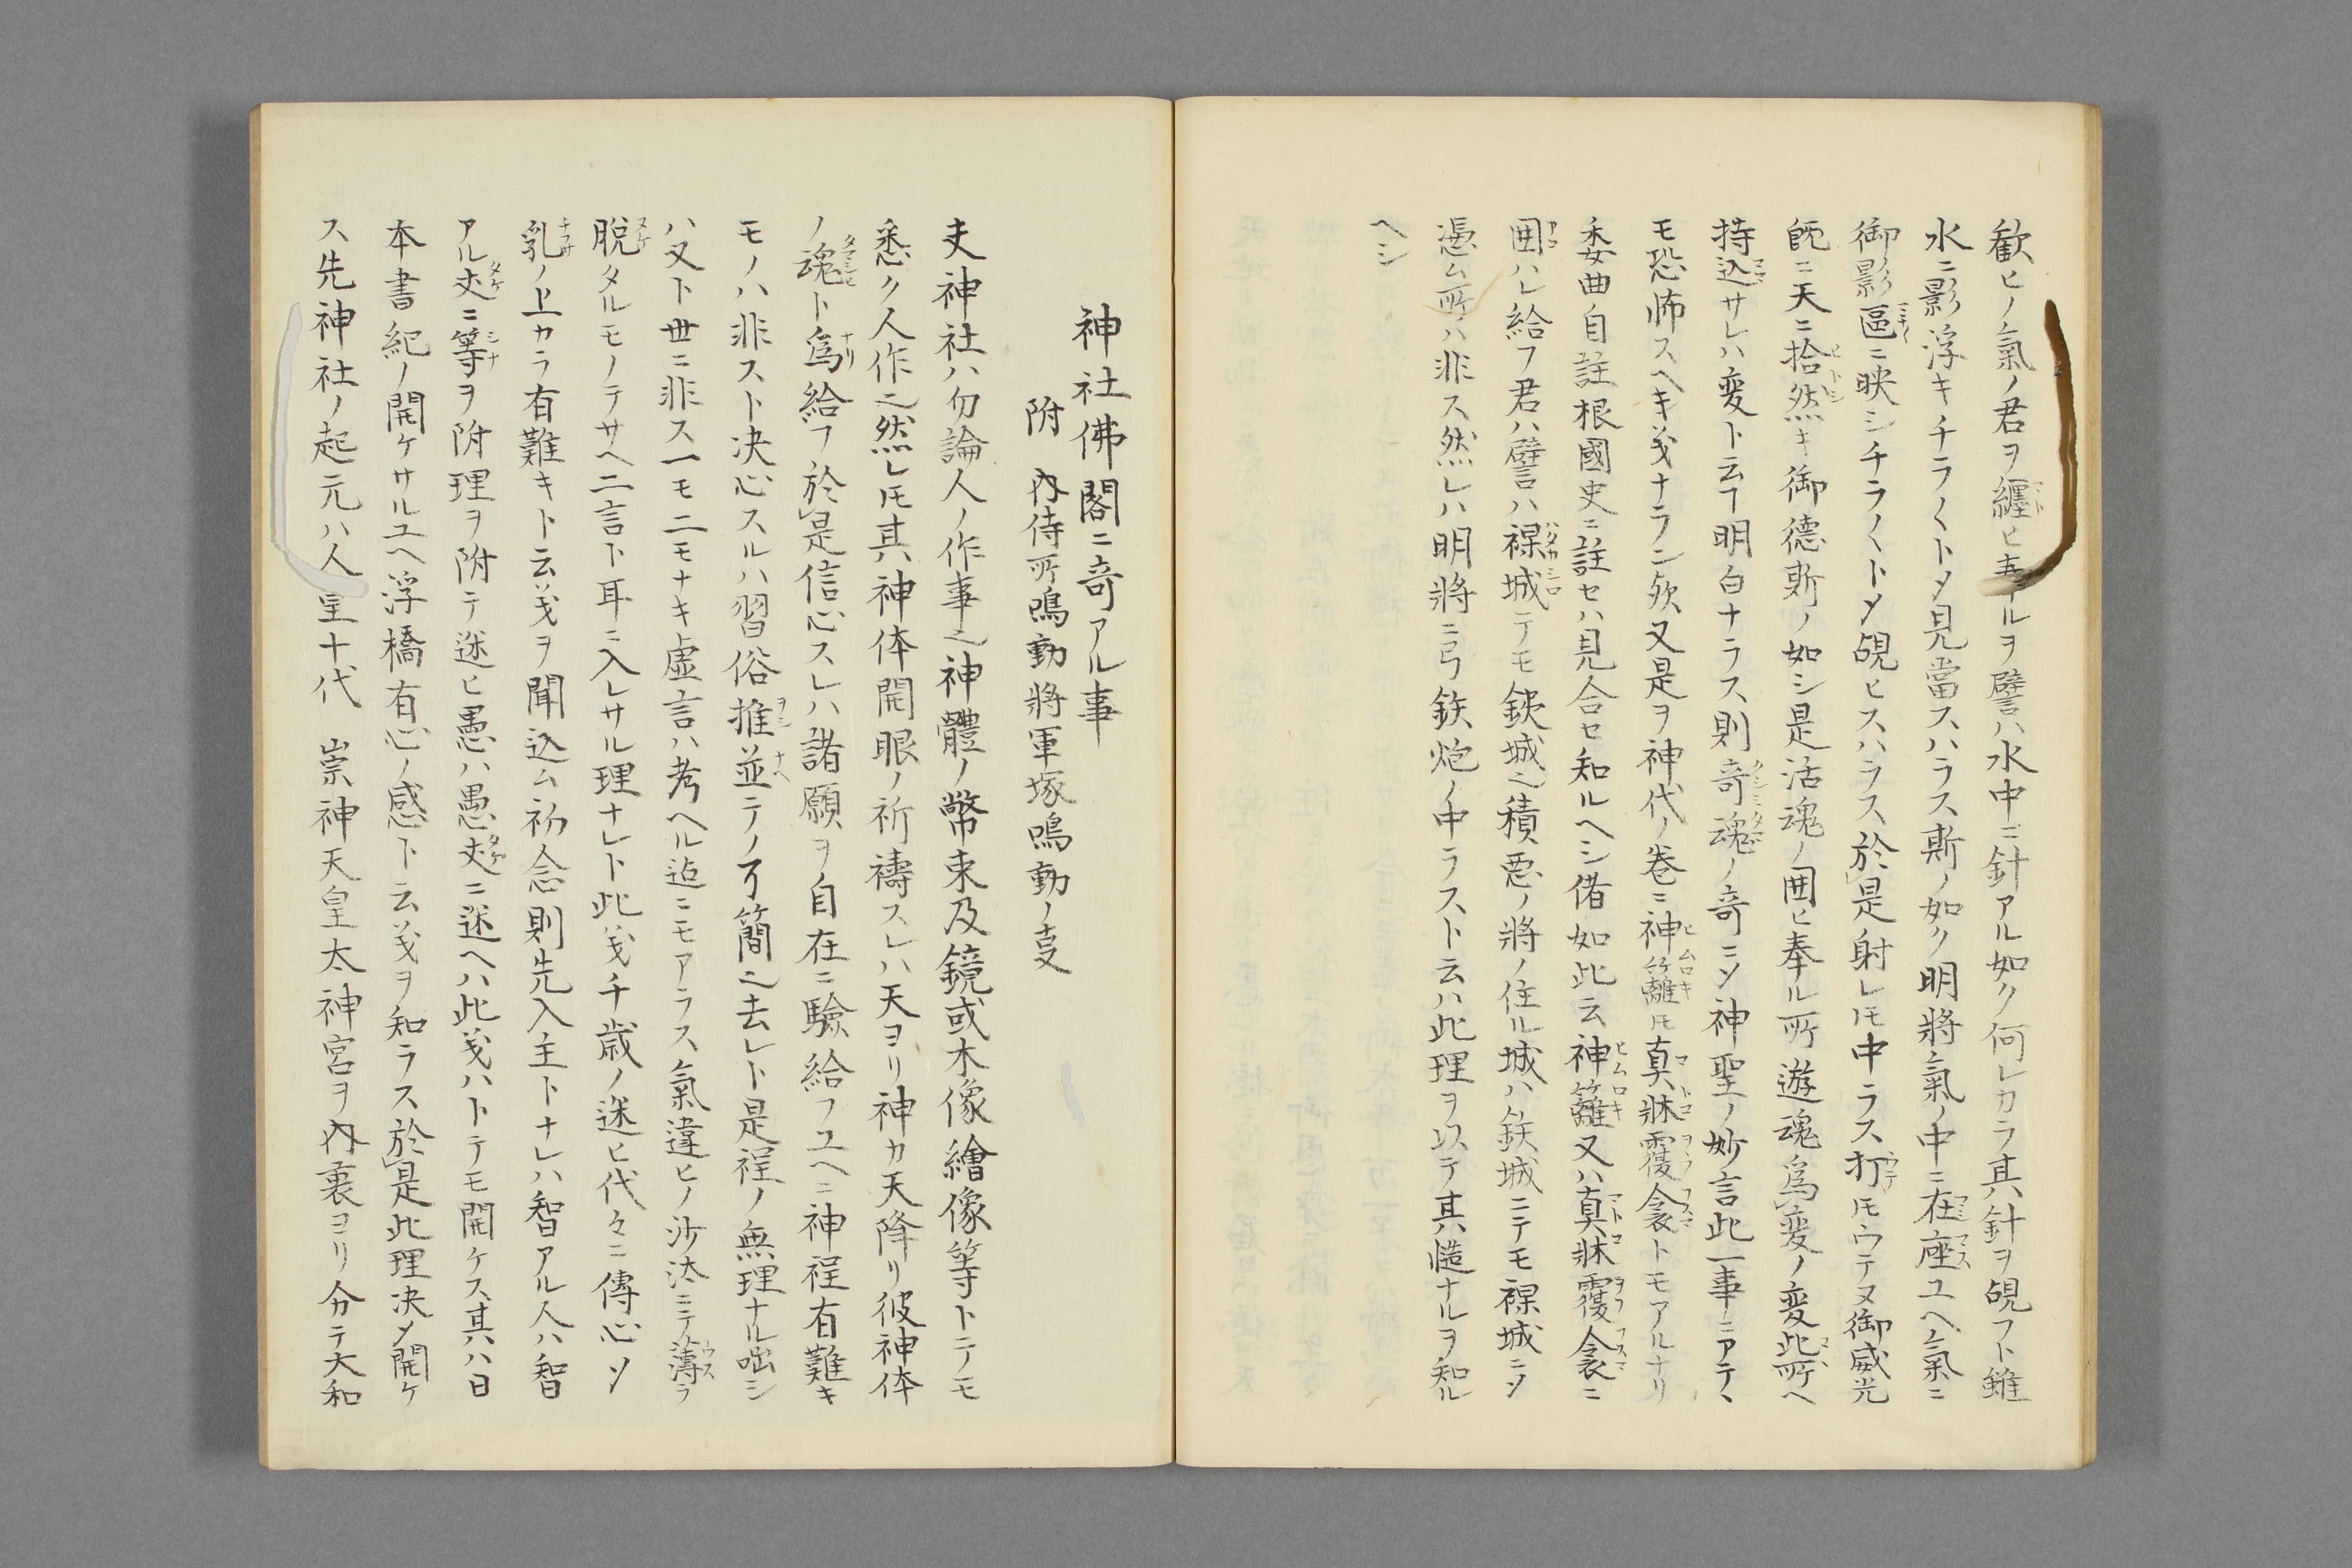 歓ヒノ氣ノ君ヲ纏ヒ奉ルヲ譬ハ水中ニ針アル如ク何レカラ其針ヲ覘フト雖
水ニ影浮キチラ〳〵トメ見當スハラス斯ノ如ク明將氣ノ中ニ在座ユヘ氣ニ
御影區ニ映シチラ〳〵トメ覘ヒスハラス於是射レ𪜈中ラス打𪜈ウテヌ御威光
既ニ天ニ拾然キ御德斯ノ如シ是活魂ノ囲ヒ奉ル所遊魂爲変ノ変此所ヘ
持込サレハ変ト云ヿ明白ナラス則竒魂ノ竒ニメ神聖ノ妙言此一事ニアテ
モ恐怖スヘキ義ナラン歟又是ヲ神代ノ巻ニ神籬𪜈真牀覆衾トモアルナリ
委曲自註根國史ニ註セハ見合セ知ルヘシ偖如此云神籬又ハ真牀覆衾ニ
囲ハレ給フ君ハ譬ハ裸城テモ鉄城之積悪ノ將ノ住ル城ハ鉄城ニテモ裸城ニメ
憑ム所ハ非ス然レハ明將ニ弓鉄炮ノ中ラスト云ハ此理ヲ以テ其慥ナルヲ知ル
ヘシ
神社佛閣ニ竒アル事
附 内侍所鳴動將軍塚鳴動ノ叓
夫神社ハ勿論人ノ作事之神體ノ幣束及鏡或木像繪像等トニテモ
悉ク人作之然レ𪜈其神体開眼ノ祈禱スレハ天ヨリ神カ天降リ彼神体
ノ魂ト爲給フ於是信心スレハ諸願ヲ自在ニ驗給フユヘニ神程有難キ
モノハ非スト决心スルハ習俗推並テノ了簡之去レト是程ノ無理ナル咄シ
ハ又ト世ニ非ス一モ二モナキ虚言ハ考ヘル迠ニモアラス氣違ヒノ沙汰ニテ薄ラ
脱タルモノテサヘ二言ト耳ニ入レサル理ナレト此義千歳ノ迷ヒ代々ニ傳心ソ
乳ノ上カラ有難キト云義ヲ聞込ム初念則先入主トナレハ智アル人ハ智
アル丈ニ等ヲ附理ヲ附テ迷ヒ愚ハ愚丈ニ迷ヘハ此義ハトテモ開ケス其ハ日
本書紀ノ開ケサルユヘ浮橋有心ノ感ト云義ヲ知ラス於是此理决メ開ケ
ス先神社ノ起元ハ人皇十代 崇神天皇太神宮ヲ内裏ヨリ分テ大和